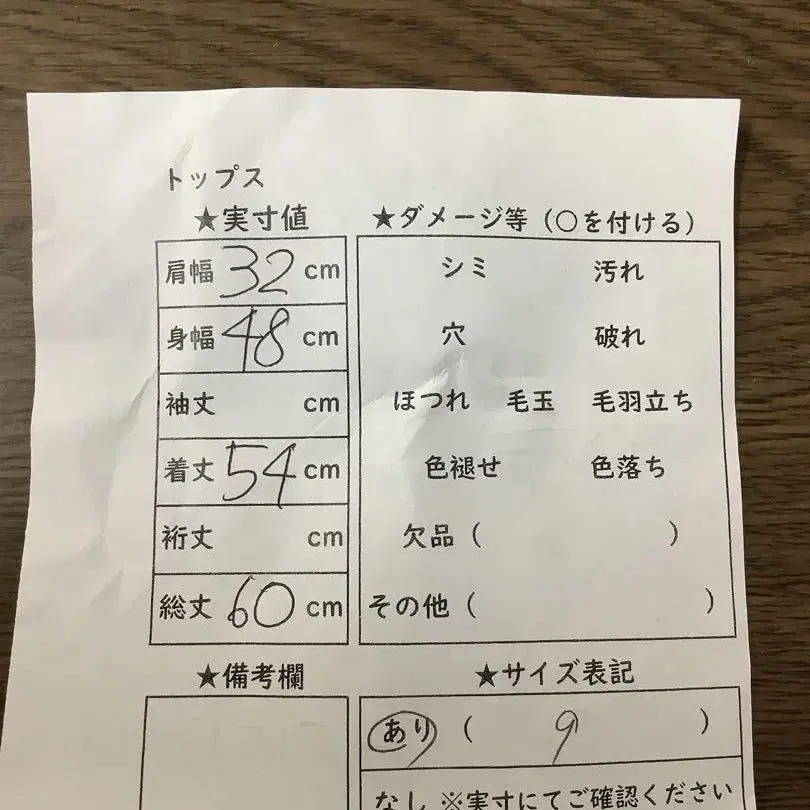 トップス
★実寸値
肩幅 32 cm
身幅 48 cm
袖丈 cm
着丈 54 cm
裄丈 cm
総丈 60 cm
★ダメージ等（○を付ける）
シミ 汚れ
穴 破れ
ほつれ 毛玉 毛羽立ち
色褪せ 色落ち
欠品（ ）
その他（ ）
★備考欄
★サイズ表記
あり（ 9 ）
なし ※実寸にてご確認ください